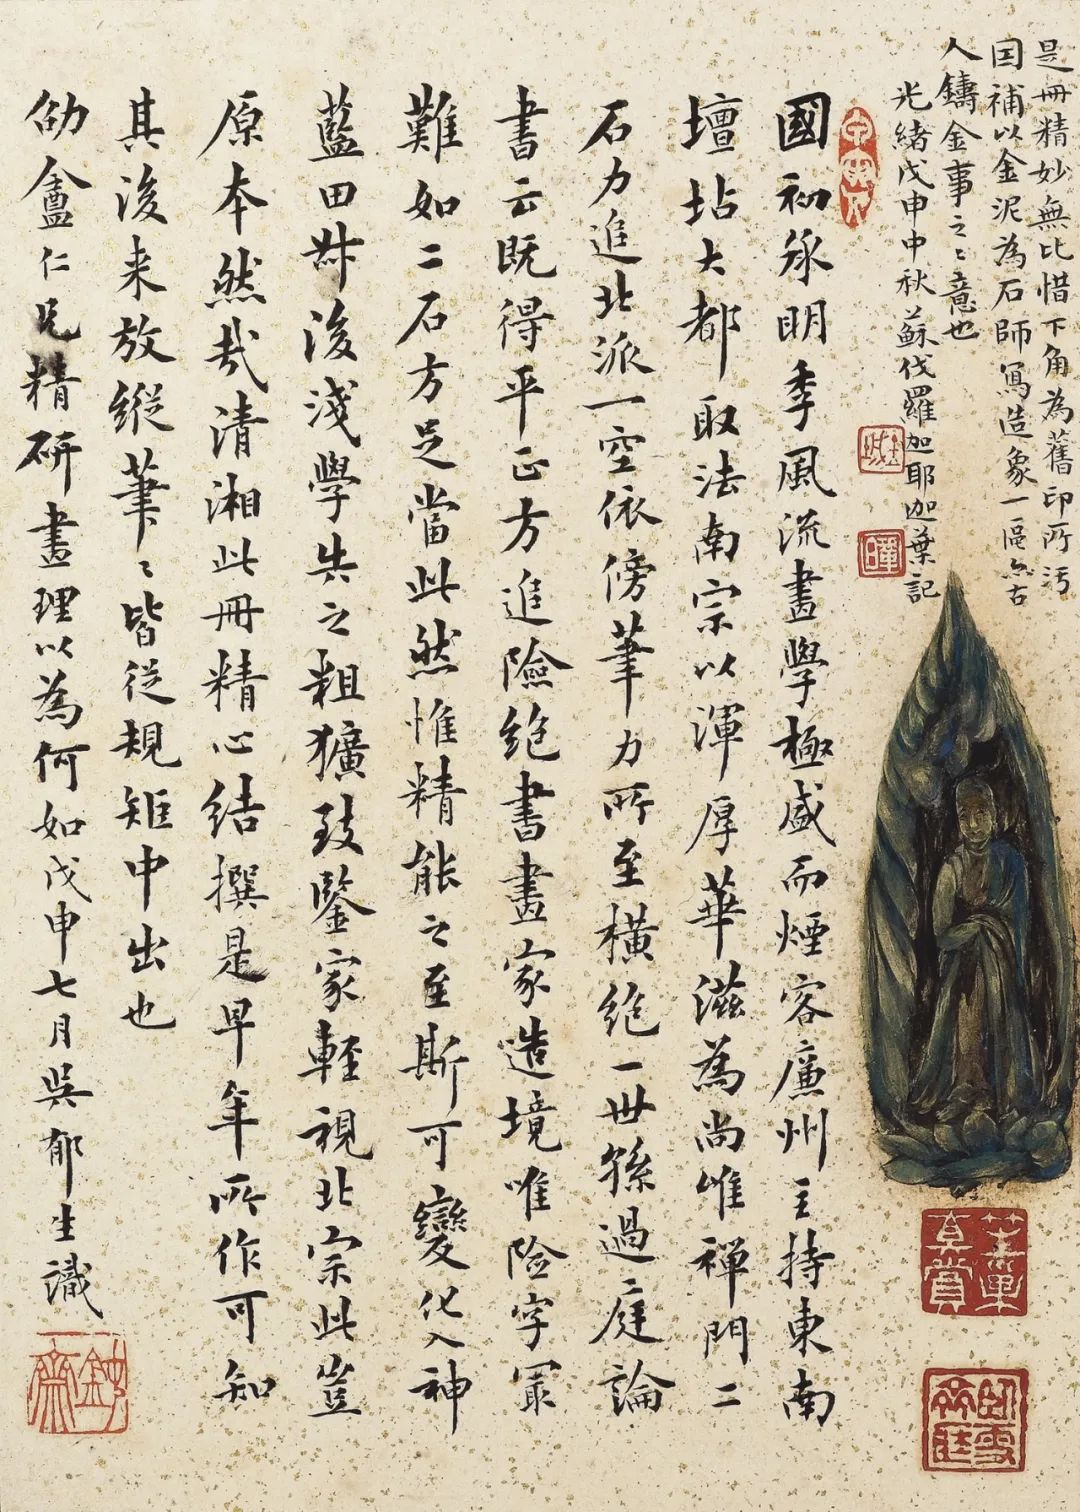 是冊精妙無比惜下角為舊印所污
因補以金泥為石師寫造象一區亦古
人鑄金事之之意也
光緒戊申中秋蘇伐羅迦耶迦葉記
國初承明季風流畫學極盛而煙客廉州主持東南
壇坫大都取法南宗以渾厚華滋為尚惟禪門二
石力追北派一空依傍筆力所至橫絕一世孫過庭論
書云既得平正方進險絕書畫家造境唯險字最
難如二石方足當此然惟精能之至斯可變化入神
藍田叔後淺學失之粗獷致鑒家輕視北宗此豈
原本然哉清湘此冊精心結撰是早年所作可知
其後來放縱筆〻皆從規矩中出也
劬盦仁兄精研畫理以為何如戊申七月吳郁生識
真賞
臥雪